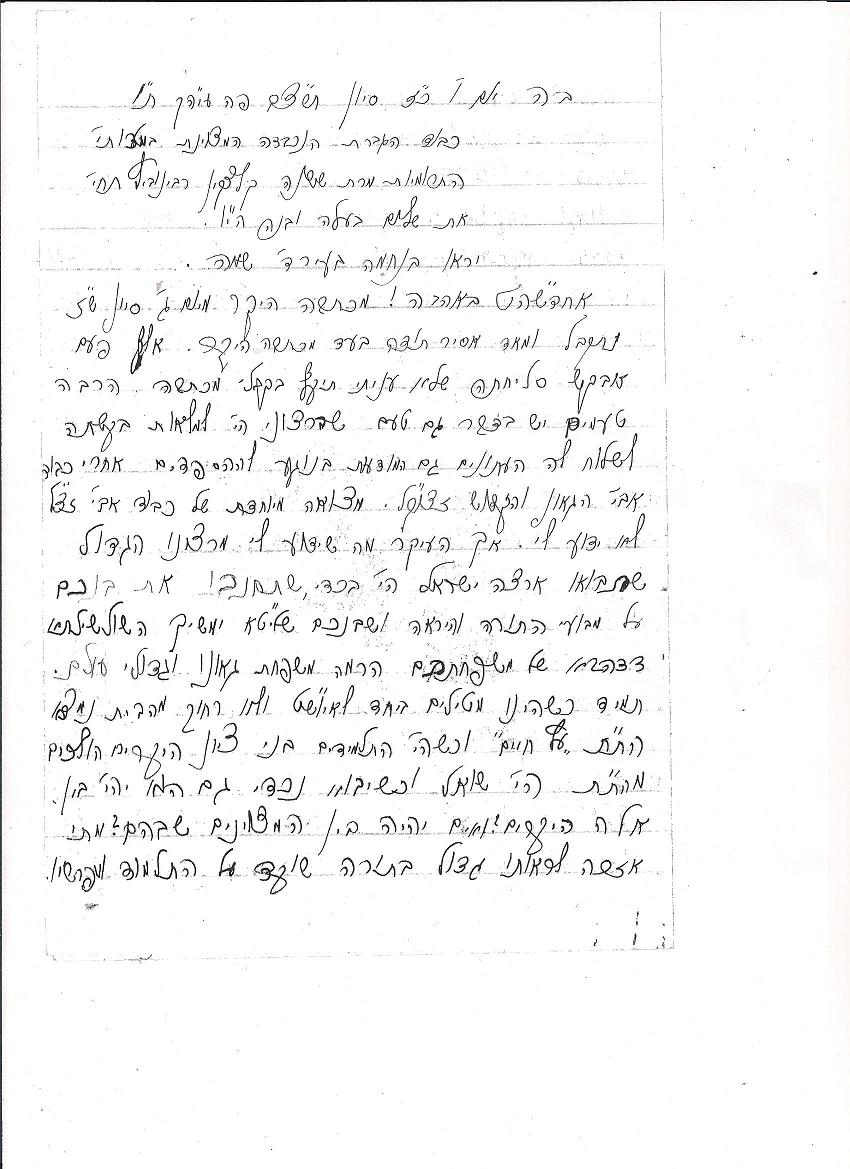 ב״ה יום ו׳ כ״ז סיון תש״ם פה עיה״ק ת״ו
כבוד הגברת הנכבדה המצוינת במדותי׳
התרומיות מרת שושנה רבינוביץ תחי׳
את שלום בעלה ובנה הי״ו.
יראו בנחמה בעיר ד׳ שמה.
אחדשה״ט באהבה! מכתבה היקר מיום ג׳ סיון ש״ז
נתקבל ומאד אסיר תודה בעד מכתבה היקר. אלף פעם
אבקש סליחתה שלא עניתי תיכף בקבלי מכתבה הרבה
טעמים יש בדבר גם טעם שרצוני הי׳ למלאות בקשתה
לשלוח לה העתונים גם המודעות בנוגע וההספדים אחרי כבוד
אבי׳ הגאון והקדוש זצוק״ל. מצואה מיוחדת של כבוד אבי׳ זצ״ל
לא ידוע לי. אך העיקר מה שידוע לי מרצונו הגדול
שתבואו ארצה ישראל הי׳ בכדי שתחנכו את בנכם
על מבועי התורה והיראה ושבנכם שליט״א ימשיך השולשלתא
דדהבא של משפחתכם הרמה משפחת גאונו וגדולי עולם.
תמיד כשהיינו מטיילים ביחד לאיזשט ולא רחוק מהבית נמצא
הת״ת ״עץ חיים״ וכשהי׳ התלמידים בני ציון היקרים הולכים
מהת״ת הי׳ שואל וכשיבוא נכדי גם הוא יהי׳ בין
אלה היקרים? והאם יהיה בין המצוינים שבהם? מתי
אזכה לראותו גדול בתורה שוקד על התלמוד ומפרשיו.